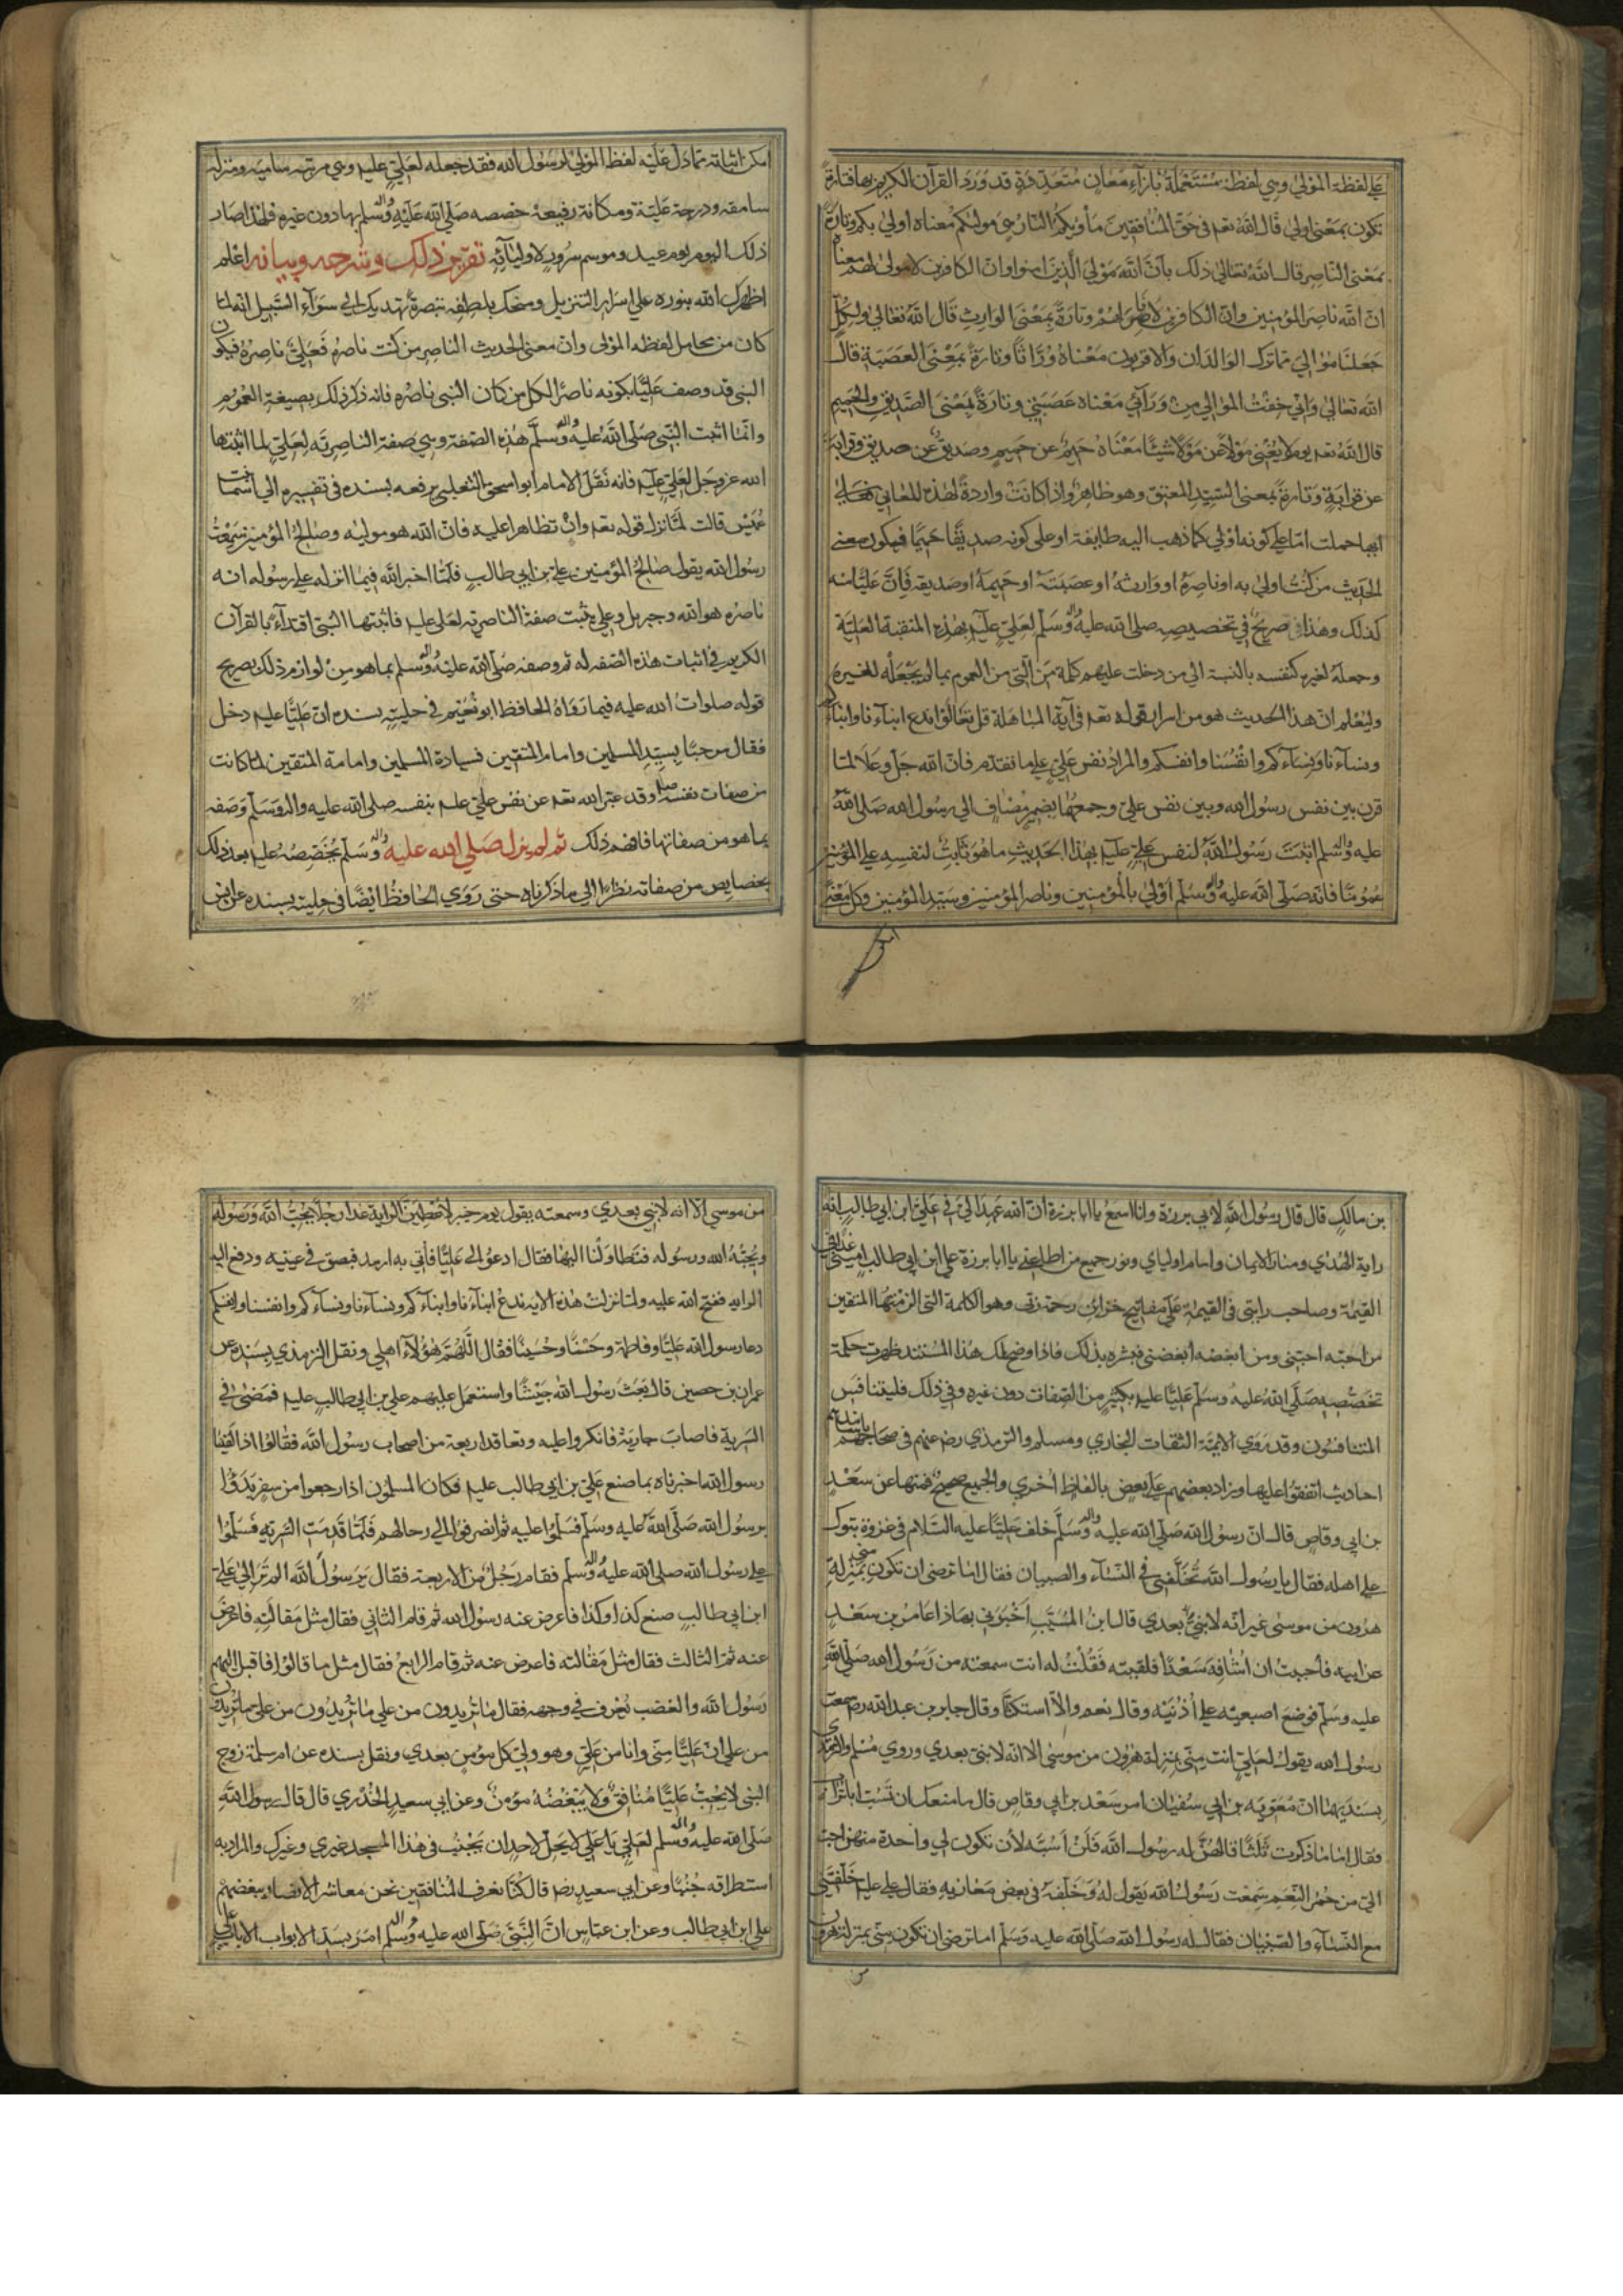 علي لفظة المولي وهي لفظة مستعملة بازاء معان متعددة قد ورد القرآن الكريم بها فتارة
تكون بمعنى اولي قال الله تعم في حق المنافقين مأويكم النار هي موليكم معناه اولي بكم وتارة
بمعنى الناصر قال الله تعالى ذلك بان الله مولي الذين امنوا وان الكافرين لامولي لهم معناه
ان الله ناصر المؤمنين وان الكافرين لاناصر لهم وتارة بمعنى الوارث قال الله تعالى ولكل
جعلنا موالي مما ترك الوالدان والاقربون معناه وراثا وتارة بمعنى العصبة قال
الله تعالى واني خفت الموالي من ورآئي معناه عصبتي وتارة بمعنى الصديق والحميم
قال الله تعم يوم لا يغني مولا عن مولا شيئا معناه حميم عن حميم وصديق عن صديق وقرابة
عن قرابة وتارة بمعنى السيد المعتق وهو ظاهر واذا كانت واردة لهذه المعاني فعلي
ايها حملت اما علي كونه اولي كما ذهب اليه طايفة او على كونه صديقا حميما فيكون معنى
الحديث من كنت اولي به او ناصره او وارثه او عصبته او حميمه او صديقه فان عليا منه
كذلك وهذا صريح في تخصيصه صلى الله عليه واله وسلم لعلي عليه بهذه المنقبة العلية
وجعله لغيره كنفسه بالنسبة الي من دخلت عليهم كلمة من التي من العموم بما لم يجعله لغيره
وليعلم ان هذا الحديث هو من اسرار قوله تعم في آية المباهلة قل تعالوا ندع ابنآءنا وابنآءكم
ونسآءنا ونسآءكم وانفسنا وانفسكم والمراد نفس علي علي ما تقدم فان الله جل وعلا لما
قرن بين نفس رسول الله وبين نفس علي وجمعهما بضمير مضاف الي رسول الله صلى الله
عليه واله وسلم اثبت رسول الله لنفس علي عليه بهذا الحديث ما هو ثابت لنفسه علي المؤمنين
عموما فانه صلى الله عليه واله وسلم اولي بالمؤمنين وناصر المؤمنين وسيد المؤمنين وكل معنى
امكن اثباته مما دل عليه لفظ المولي لرسول الله فقد جعله لعلي عليه وهي مرتبة سامية ومنزلة
سامقة ودرجة علية ومكانة رفيعة خصصه صلى الله عليه واله وسلم بها دون غيره فلهذا صار
ذلك اليوم يوم عيد وموسم سرور لاوليآئه تقرير ذلك وشرحه وبيانه اعلم
اظهرك الله بنوره علي اسرار التنزيل ومنحك بلطفه تبصرة تهديك الي سوآء السبيل انه لما
كان من محامل لفظه المولى وان معنى الحديث الناصر من كنت ناصره فعلي ناصره فيكون
النبي قد وصف عليا بكونه ناصرا لكل من كان النبي ناصره فانه ذكر ذلك بصيغة العموم
وانما اثبت النبي صلى الله عليه واله وسلم هذه الصفة وهي صفة الناصرية لعلي لما اثبتها
الله عز وجل لعلي عليه فانه نقل الامام ابو اسحق الثعلبي يرفعه بسنده في تفسيره الي اسماء بنت
عميس قالت لما نزل قوله تعم وان تظاهرا عليه فان الله هو موليه وصالح المؤمنين سمعت
رسول الله يقول صالح المؤمنين علي بن ابي طالب فلما اخبر الله فيما انزله علي رسوله انه
ناصره هو الله وجبريل وعلي يثبت صفة الناصرية لعلي عليه فاثبتها النبي اقتدآء بالقرآن
الكريم في اثبات هذه الصفه له ثم وصفه صلى الله عليه واله وسلم بما هو من لوازم ذلك بصريح
قوله صلوات الله عليه فيما رواه الحافظ ابو نعيم في حليته بسنده ان عليا عليه دخل
فقال مرحبا بسيد المسلمين وامام المتقين فسيادة المسلمين وامامة المتقين لما كانت
من صفات نفسه وقد عبر الله تعم عن نفس علي عليه بنفسه صلى الله عليه واله وسلم وصفه
بما هو من صفاتها فافهم ذلك ثم لم يزل صلي الله عليه واله وسلم يخصصه عليه بعد ذلك
بخصايص من صفاته نظرا الي ما ذكرناه حتى روي الحافظ ايضا في حليته بسنده عن انس
بن مالك قال قال رسول الله لابي برزة وانا اسمع يا ابا برزة ان الله عهد الي في علي ابن ابي طالب انه
راية الهدي ومنار الايمان وامام اوليائي ونور جميع من اطاعني يا ابا برزة علي ابن ابي طالب اميني غدا في
القيمة وصاحب رايتي في القيمة علي مفاتيح خزاين رحمة ربي وهو الكلمة التي الزمتها المتقين
من احبه احبني ومن ابغضه ابغضني فبشره بذلك فاذا وضح لك هذا المستند ظهرت حكمة
تخصيصه صلى الله عليه وسلم عليا عليه بكثير من الصفات دون غيره وفي ذلك فليتنافس
المتنافسون وقد روي الايمة الثقات البخاري ومسلم والترمذي رضي عنهم في صحاحهم باسانيدهم
احاديث اتفقوا عليها وزاد بعضهم علي بعض بالفاظ اخري والجميع صحيح فمنها عن سعد
بن ابي وقاص قال ان رسول الله صلى الله عليه واله وسلم خلف عليا عليه السلام في غزوة تبوك
علي اهله فقال يا رسول الله تخلفني في النسآء والصبيان فقال اما ترضى ان تكون مني بمنزلة
هرون من موسى غير انه لانبي بعدي قال ابن المسيب اخبرني بهذا عامر بن سعد
عن ابيه فأحببت ان اشافه سعدا فلقيته فقلت له انت سمعته من رسول الله صلى الله
عليه وسلم فوضع اصبعيه علي اذنيه وقال نعم والا استكتا وقال جابر بن عبد الله رضي سمعت
رسول الله يقول لعلي انت مني بمنزلة هرون من موسى الا انه لا نبي بعدي وروي مسلم والترمذي
بسنديهما ان معوية بن ابي سفيان امر سعد بن ابي وقاص قال ما منعك ان تسب ابا تراب
فقال اما ما ذكرت ثلثا قالهن له رسول الله فلن اسبه لأن تكون لي واحدة منهن احب
الي من حمر النعم سمعت رسول الله يقول له وخلفه في بعض مغازيه فقال علي عليه خلفتني
مع النسآء والصبيان فقال له رسول الله صلى الله عليه وسلم اما ترضى ان تكون مني بمنزلة هرون
من موسي الا انه لانبي بعدي وسمعته يقول يوم خيبر لاعطين الراية غدا رجلا يحب الله ورسوله
ويحبه الله ورسوله فتطاولنا اليها فقال ادعوا لي عليا فأتي به ارمد فبصق في عينيه ودفع اليه
الراية ففتح الله عليه ولما نزلت هذه الايه ندع ابنآءنا وابنآءكم ونسآءنا ونسآءكم وانفسنا وانفسكم
دعا رسول الله عليا وفاطمة وحسنا وحسينا فقال اللهم هؤلآء اهلي ونقل الترمذي بسنده عن
عمران بن حصين قال بعث رسول الله جيشا واستعمل عليهم علي بن ابي طالب عليه فمضى في
السرية فاصاب جارية فانكروا عليه وتعاقد اربعة من اصحاب رسول الله فقالوا اذا لقينا
رسول الله اخبرناه بما صنع علي بن ابي طالب عليه فكان المسلمون اذا رجعوا من سفر بدؤا
برسول الله صلى الله عليه وسلم فسلموا عليه ثم انصرفوا الي رحالهم فلما قدمت السرية فسلموا
علي رسول الله صلى الله عليه واله وسلم فقام رجل من الاربعة فقال يرسول الله الم تر الي علي
ابن ابي طالب صنع كذا وكذا فاعرض عنه رسول الله ثم قام الثاني فقال مثل مقالته فاعرض
عنه ثم الثالث فقال مثل مقالته فاعرض عنه ثم قام الرابع فقال مثل ما قالوا فاقبل اليهم
رسول الله والغضب يعرف في وجهه فقال ما تريدون من علي ما تريدون من علي ما تريدون
من علي ان عليا مني وانا من علي وهو ولي كل مؤمن بعدي ونقل بسنده عن ام سلمة زوج
النبي لا يحب عليا منافق ولا يبغضه مؤمن وعن ابي سعيد الخدري قال قال رسول الله
صلى الله عليه واله وسلم لعلي يا علي لا يحل لاحد ان يجنب في هذا المسجد غيري وغيرك والمراد به
استطراقه جنبا وعن ابي سعيد رضي قال كنا نعرف المنافقين نحن معاشر الانصار ببغضهم
علي ابن ابي طالب وعن ابن عباس ان النبي صلى الله عليه واله وسلم امر بسد الابواب الا باب علي